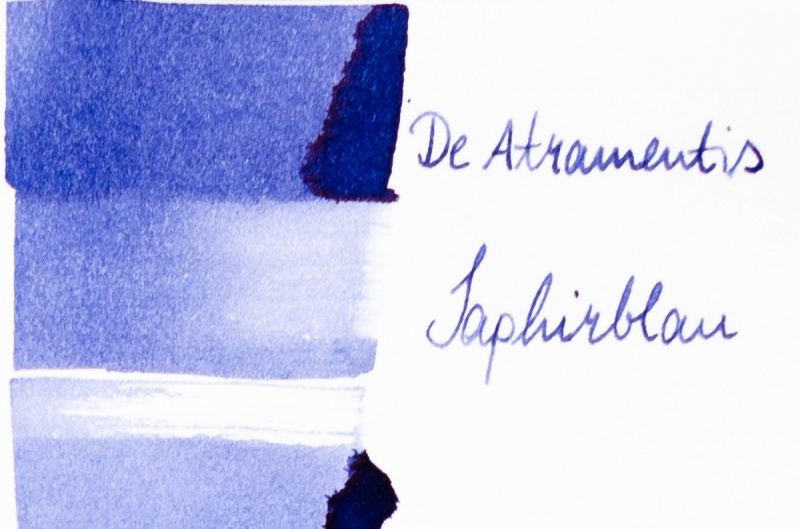 De Atramentis
Saphirblau